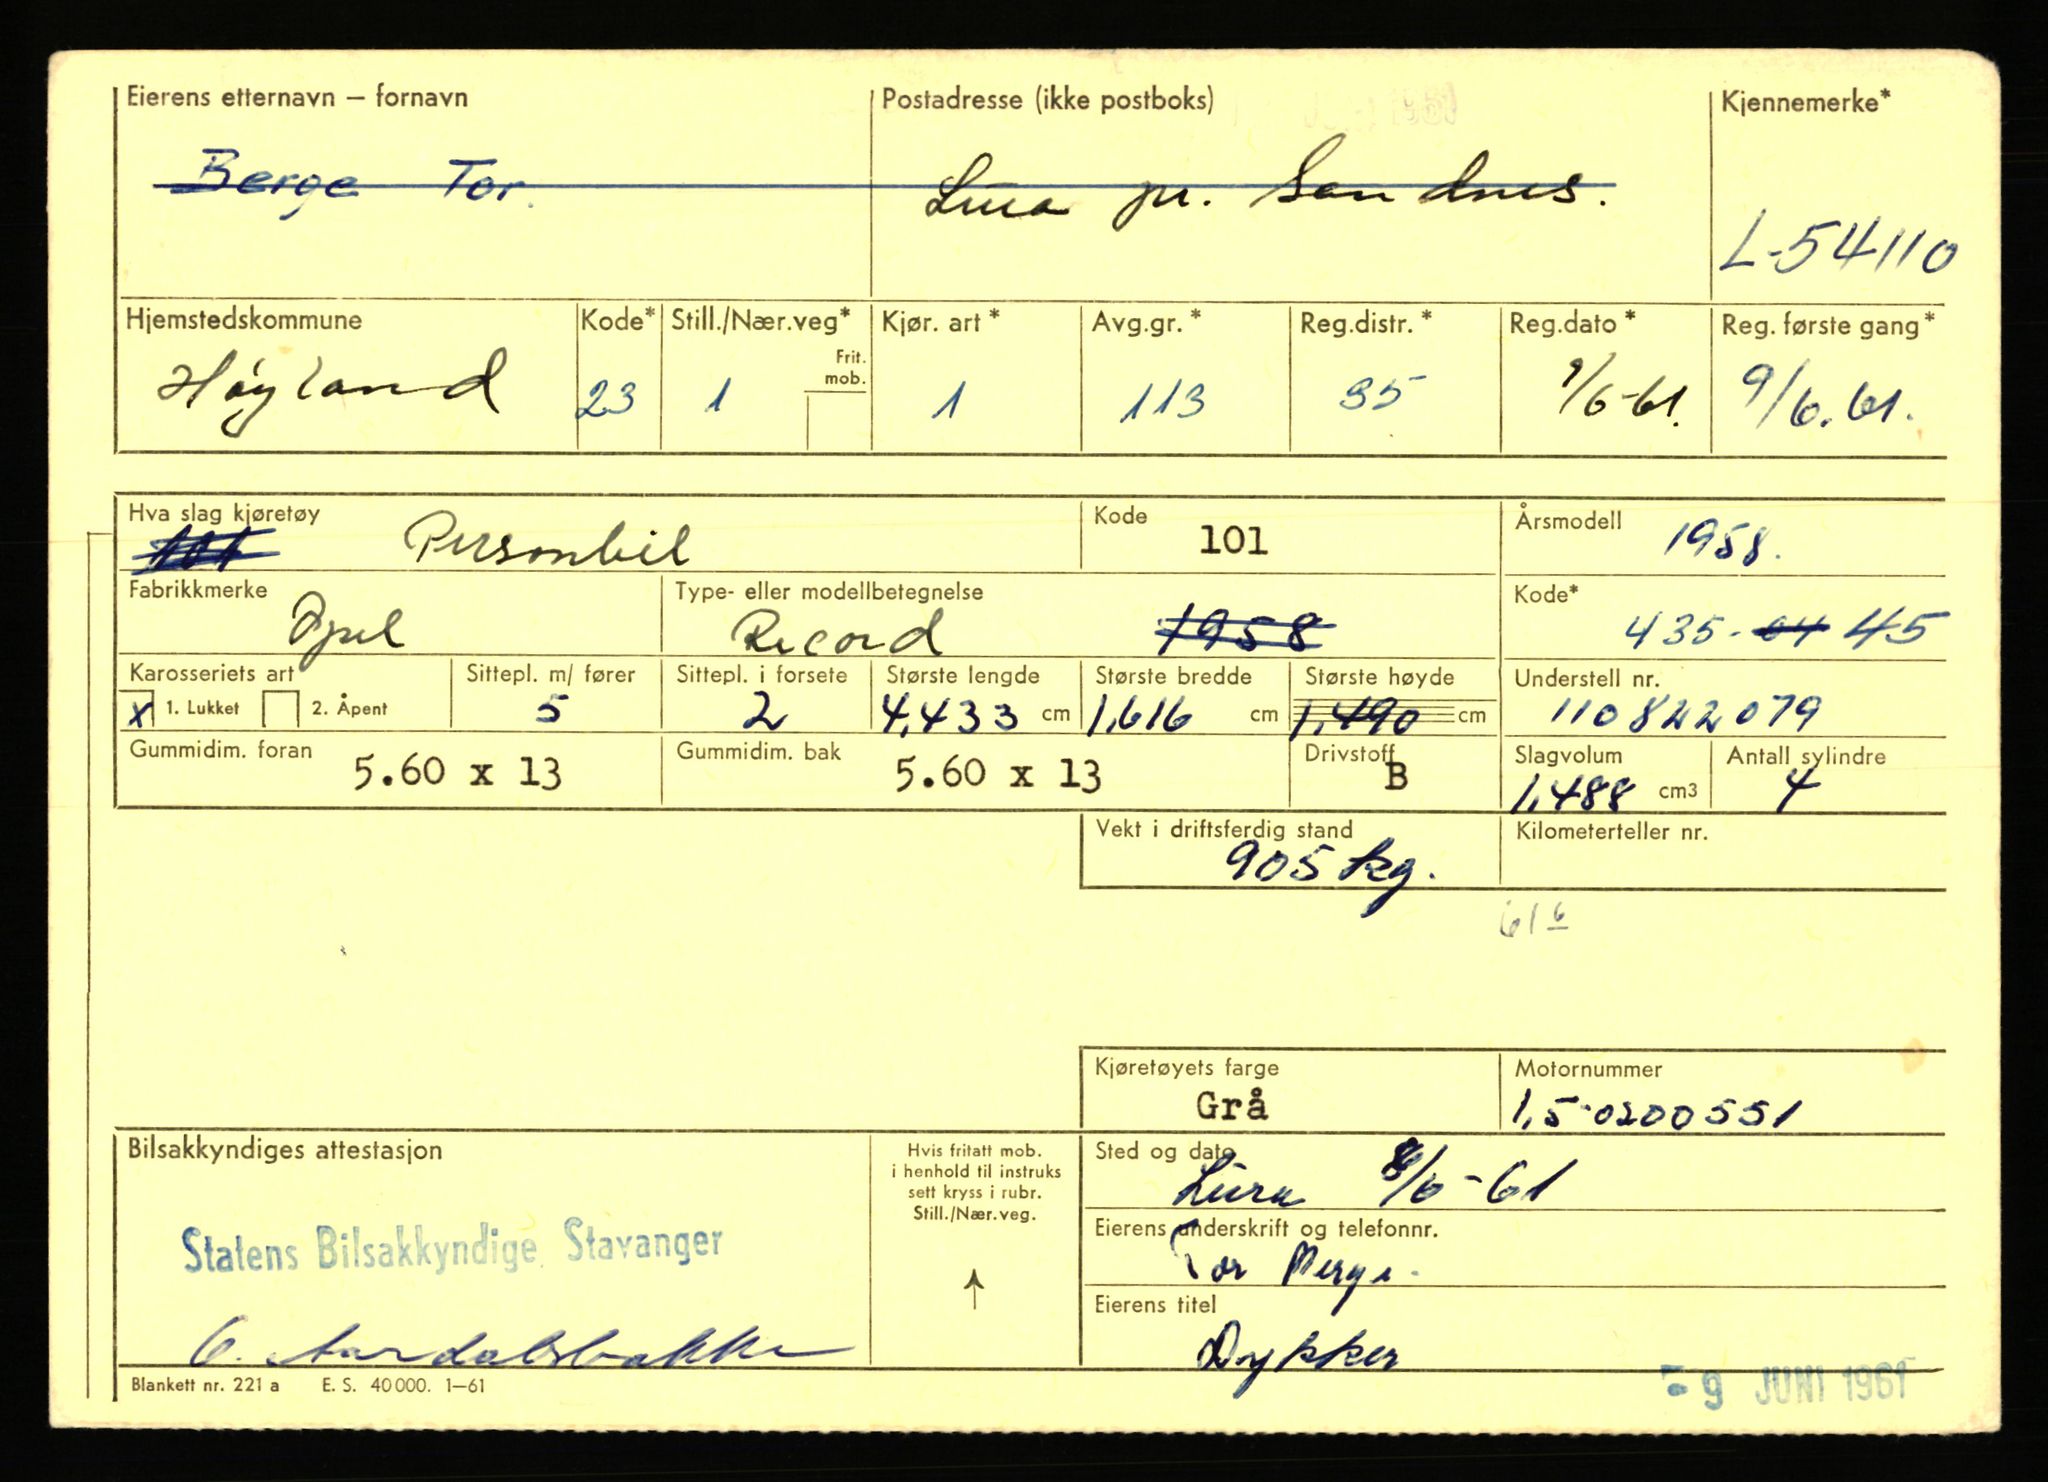 Eierens etternavn – fornavn Postadresse (ikke postboks) Kjennemerke*
Berge Tor. Lura pr. Sandnes.
L-54110
Hjemstedskommune Kode* Still./Nær.veg* Kjør. art* Avg.gr.* Reg.distr.* Reg.dato* Reg. første gang*
Frit. mob.
Høyland 23 1 1 113 35 9/6-61. 9/6.61.
Hva slag kjøretøy Kode Årsmodell
101 Personbil 101 1958.
Fabrikkmerke Type- eller modellbetegnelse Kode*
Opel Record 1958 435-04 45
Karosseriets art Sittepl. m/ fører Sittepl. i forsete Største lengde Største bredde Største høyde Understell nr.
x 1. Lukket 2. Åpent 5 2 4,433 cm 1,616 cm 1,490 cm 110822079
Gummidim. foran Gummidim. bak Drivstoff Slagvolum Antall sylindre
5.60 x 13 5.60 x 13 B 1,488 cm3 4
Vekt i driftsferdig stand Kilometerteller nr.
905 kg.
61 6
Kjøretøyets farge Motornummer
Grå 1,5-0200551
Bilsakkyndiges attestasjon
Hvis fritatt mob.
i henhold til instruks
sett kryss i rubr.
Still./Nær.veg.
Sted og dato
Lura 8/6-61
Eierens underskrift og telefonnr.
Statens Bilsakkyndige, Stavanger
Tor Berge.
Eierens titel
O. Aardalsbakke
Dykker
Blankett nr. 221 a E. S. 40 000. 1–61
- 9 JUNI 1961